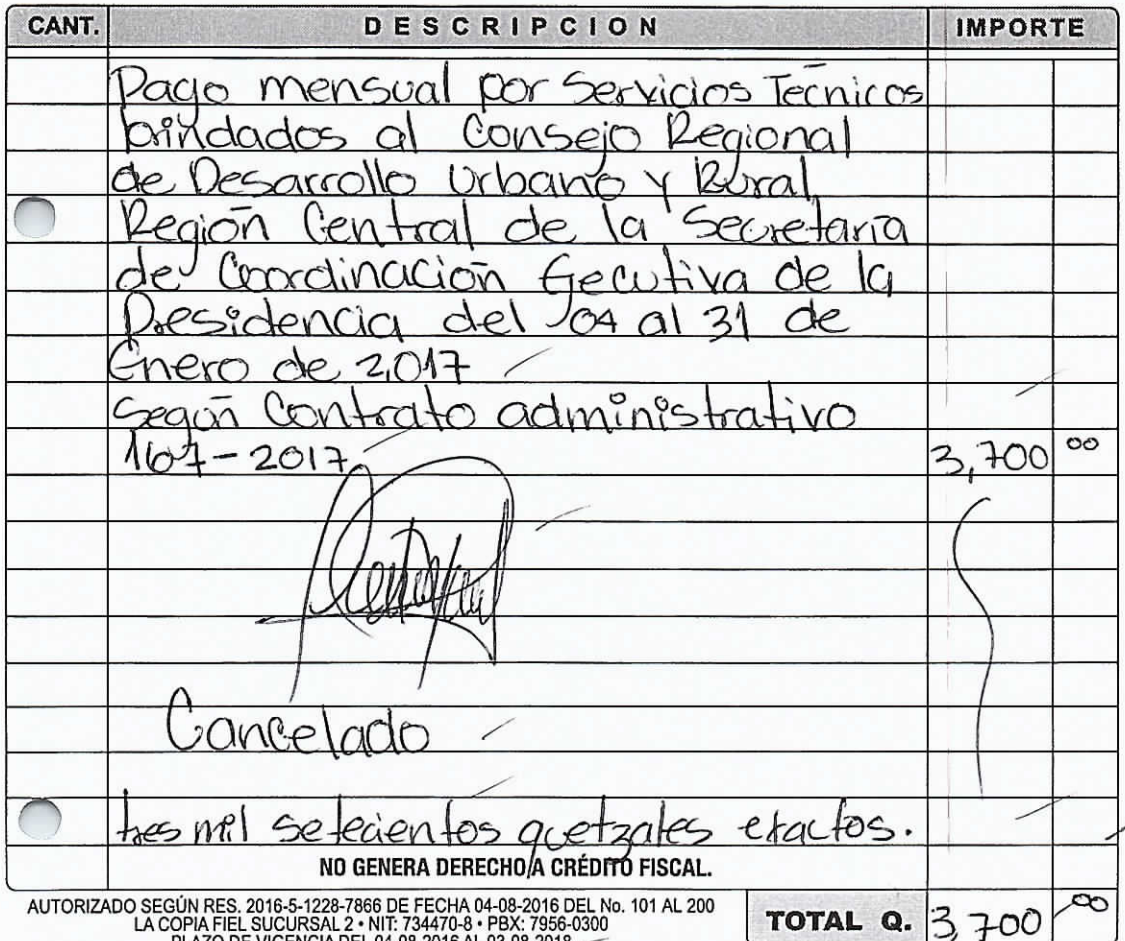 CANT. DESCRIPCION IMPORTE
Pago mensual por Servicios Tecnicos
brindados al Consejo Regional
de Desarrollo Urbano y Rural,
Región Central de la Secretaría
de Coordinación Ejecutiva de la
Presidencia del 04 al 31 de
Enero de 2,017
Según Contrato administrativo
167-2017 3,700 00
Cancelado
tres mil setecientos quetzales exactos.
NO GENERA DERECHO A CRÉDITO FISCAL.
AUTORIZADO SEGÚN RES. 2016-5-1228-7866 DE FECHA 04-08-2016 DEL No. 101 AL 200
LA COPIA FIEL SUCURSAL 2 • NIT: 734470-8 • PBX: 7956-0300
PLAZO DE VIGENCIA DEL 04-08-2016 AL 03-08-2018
TOTAL Q. 3,700 00